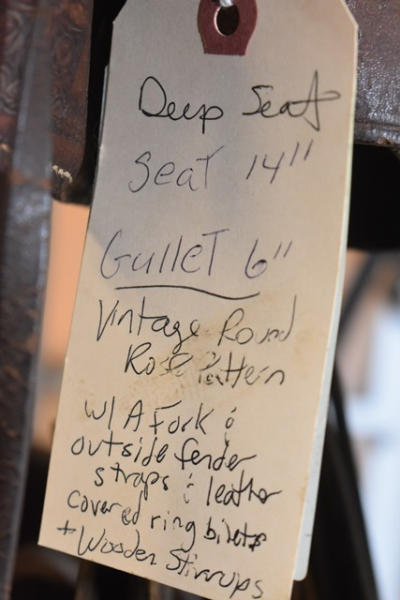 Deep Seat
Seat 14"
Gullet 6"
Vintage Round
Rose Pattern
w/ A Fork &
outside fender
straps & leather
covered ring binets
+ Wooden Stirrups